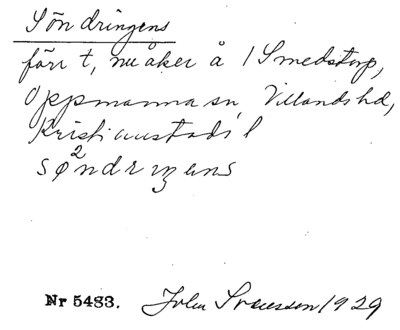 Söndringens
förr t, nu åker å 1 Smedstorp,
Oppmanna sn Villands hd,
Kristianstads l
Nr 5483. John Svensson 1929